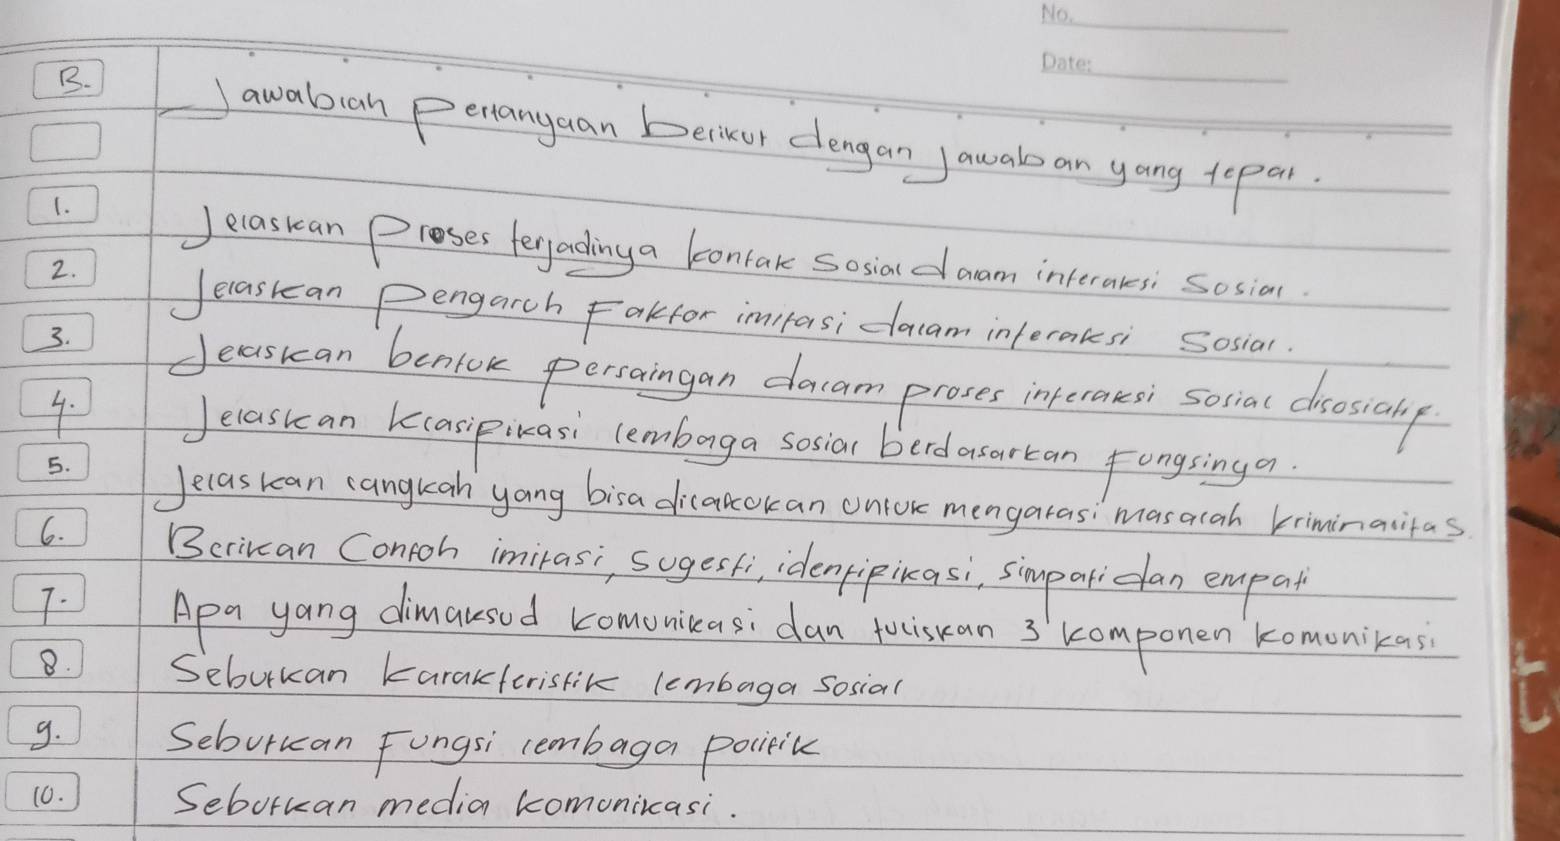 No.
Date:
B. Jawablah Pertanyaan berikut dengan Jawaban yang tepat.
1. Jelaskan Proses terjadinya kontak Sosial dalam interaksi Sosial.
2. Jelaskan Pengaruh Faktor imitasi dalam interaksi Sosial.
3. Jelaskan bentuk persaingan dalam proses interaksi sosial disosiatif.
4. Jelaskan Klasifikasi lembaga sosial berdasarkan Fungsinya.
5. Jelaskan langkah yang bisa dilakukan untuk mengatasi masalah kriminalitas
6. Berikan Contoh imitasi, Sugesti, identifikasi, simpati dan empati
7. Apa yang dimaksud komunikasi dan tuliskan 3 komponen komunikasi
8. Sebutkan karakteristik lembaga sosial
9. Sebutkan Fungsi lembaga politik
10. Sebutkan media komunikasi.